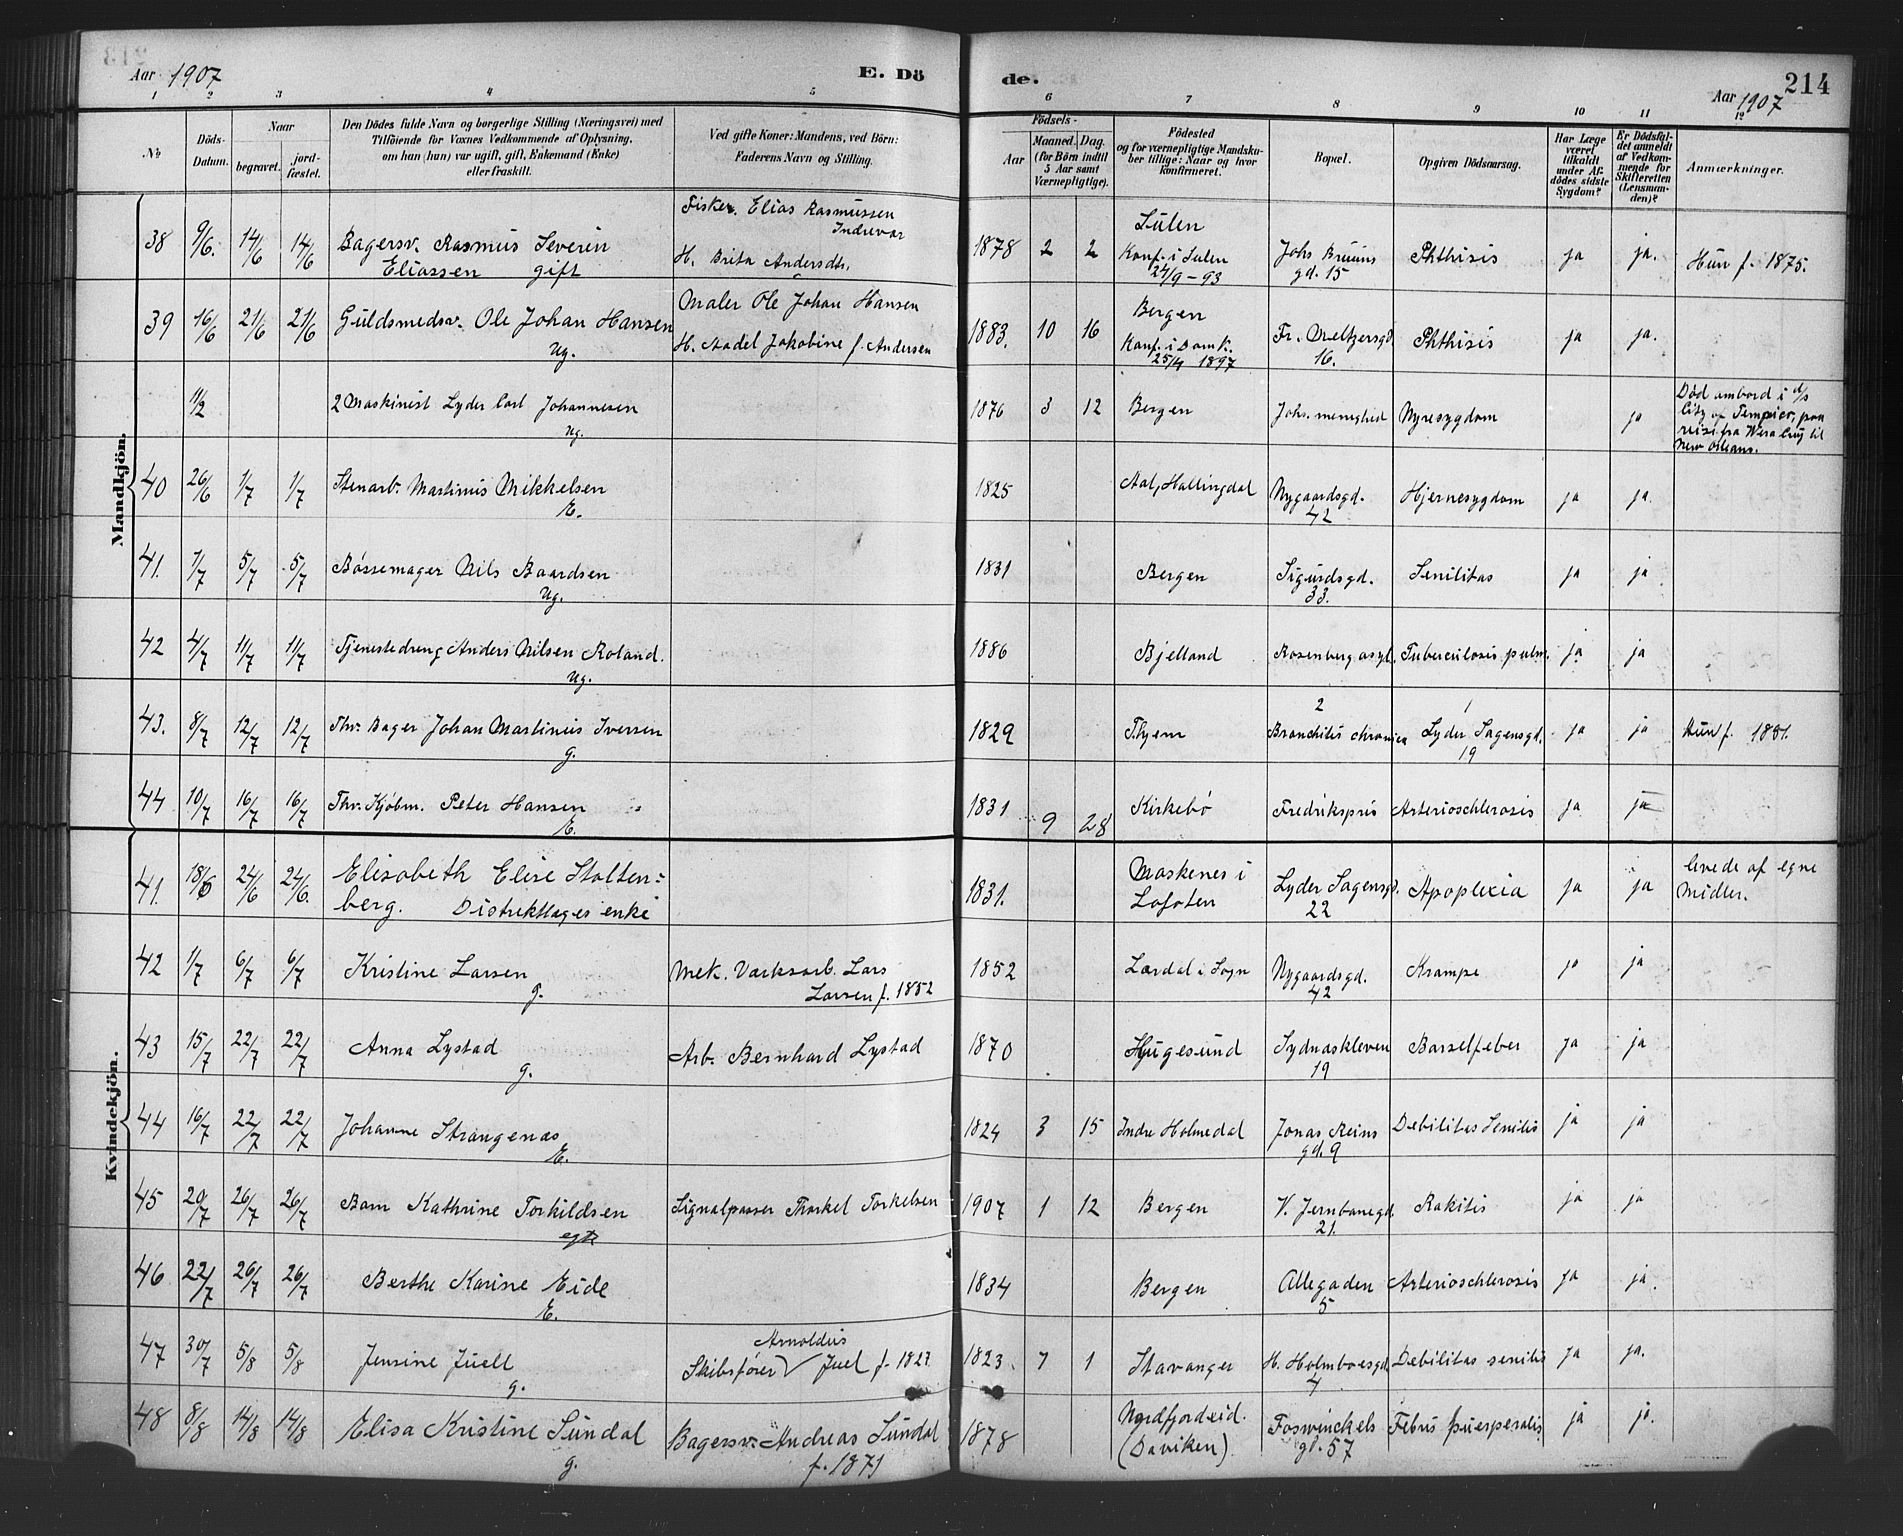 Aar 1907 E. Dö
de. Aar 1907 214
1 2 3 4 5 6 7 8 9 10 11 12
№ Döds-Datum. Naar begravet. jord-fæstet. Den Dödes fulde Navn og borgerlige Stilling (Næringsvei) med Tilföiende for Voxnes Vedkommende af Oplysning, om han (hun) var ugift, gift, Enkemand (Enke) eller fraskilt. Ved gifte Koner: Mandens, ved Börn: Faderens Navn og Stilling. Födsels- Aar Maaned. Dag. (for Börn indtil 5 Aar samt Værnepligtige). Födested og for værnepligtige Mandskaber tillige: Naar og hvor konfirmeret. Bopæl. Opgiven Dödsaarsag. Har Læge været tilkaldt under Afdödes sidste Sygdom? Er Dödsfaldet anmeldt af Vedkommende for Skifteretten (Lensmanden)? Anmærkninger.
Mandkjön.
38 9/6. 14/6 14/6 Bagersv. Rasmus Severin Eliassen gift Fisker. Elias Rasmussen Indrevær H. Brita Andersdtr. 1878 2 2 Sulen Konf. i Sulen 24/9-93 Johs Bruuns gd. 15 Phthisis ja ja. Hun f. 1875.
39 16/6 21/6 21/6 Guldsmedsv. Ole Johan Hansen ug. Maler Ole Johan Hansen H. Aadel Jakobine f. Andersen 1883. 10 16 Bergen Konf. i Domk. 25/4 1897 Fr. Meltzersgd. 16. Phthisis ja ja.
1/2 2 Maskinist Lyder Carl Johannesen ug. 1876 3 12 Bergen Johs. menighed Nyresygdom ja Död ombord i d/s City of Tempico, paa reise fra Wera Cruz til New Orleans.
40 26/6 1/7 1/7 Stenarb. Martinus Mikkelsen E. 1825 Aal, Hallingdal Nygaardsgd. 42 Hjernesygdom ja ja.
41. 1/7 5/7 5/7 Bøssemager Nils Baardsen ug. 1831 Bergen Sigurdsgd. 33. Senilitas ja ja
42 4/7 11/7 11/7 Tjenestedreng Anders Nilsen Roland. ug. 1886 Bjelland Rosenberg asyl. Tuberculosis pulm. ja ja
43. 8/7 12/7 12/7 Fhv. Bager Johan Martinius Iversen g. 1829 Thjem 2 Bronchitis chronica 1 Lyder Sagensgd. 19 ja ja Hun f. 1851.
44 10/7 16/7 16/7 Fhv. Kjøbm. Peter Hansen E. 1831 9 28 Kirkebø Fredrikspris Arterioschlerosis ja ja
Kvindekjön.
41. 18/6 24/6 24/6. Elisabeth Elise Stolten= berg. Distriktlæges enke 1831. Moskenes i Lofoten Lyder Sagensgd. 22 Apoplexia ja ja levede af egne Midler.
42 1/7 6/7 6/7 Kristine Larsen g. Mek. Værksarb. Lars Larsen f. 1852 1852 Lærdal i Sogn Nygaardsgd. 42 Krampe ja ja
43 15/7 22/7 22/7 Anna Lystad g. Arb. Bernhard Lystad 1870 Haugesund Sydnæskleven 19 Barselfeber ja ja
44 16/7 22/7 22/7 Johanne Strangenæs E. 1824 3 15 Indre Holmedal Jonas Reins gd. 9 Debilitas Senilis ja ja
45 20/7 26/7 26/7 Barn Kathrine Torkildsen egte Signalpasser Thorkel Torkelsen 1907 1 12 Bergen V. Jernbanegd. 21. Rakitis ja ja
46 22/7 26/7 26/7 Berthe Karine Eide E. 1834 Bergen Allegaden 5 Arterioschlerosis ja ja.
47 30/7 5/8 5/8 Jensine Juell g. Skibsfører Arnoldus Juel f. 1823 1823. 7 1 Stavanger H. Holmboesgd. 4 Debilitas senilis ja ja.
48 8/8 14/8 14/8 Elisa Kristine Sundal g. Bagersv. Andreas Sundal f. 1871 1878 Nordfjordeid. (Daviken) Foswinckels gd. 57 Febris puerperalis ja ja.